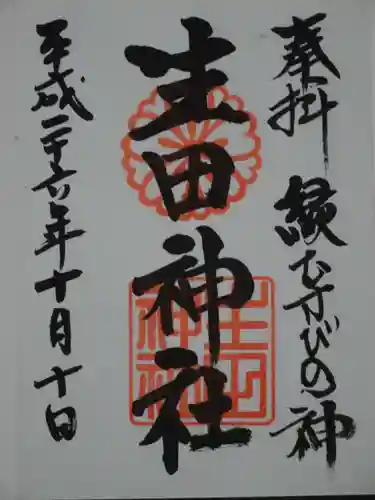 奉拝 縁むすびの神
生田神社
生田神社
平成二十六年十月十日